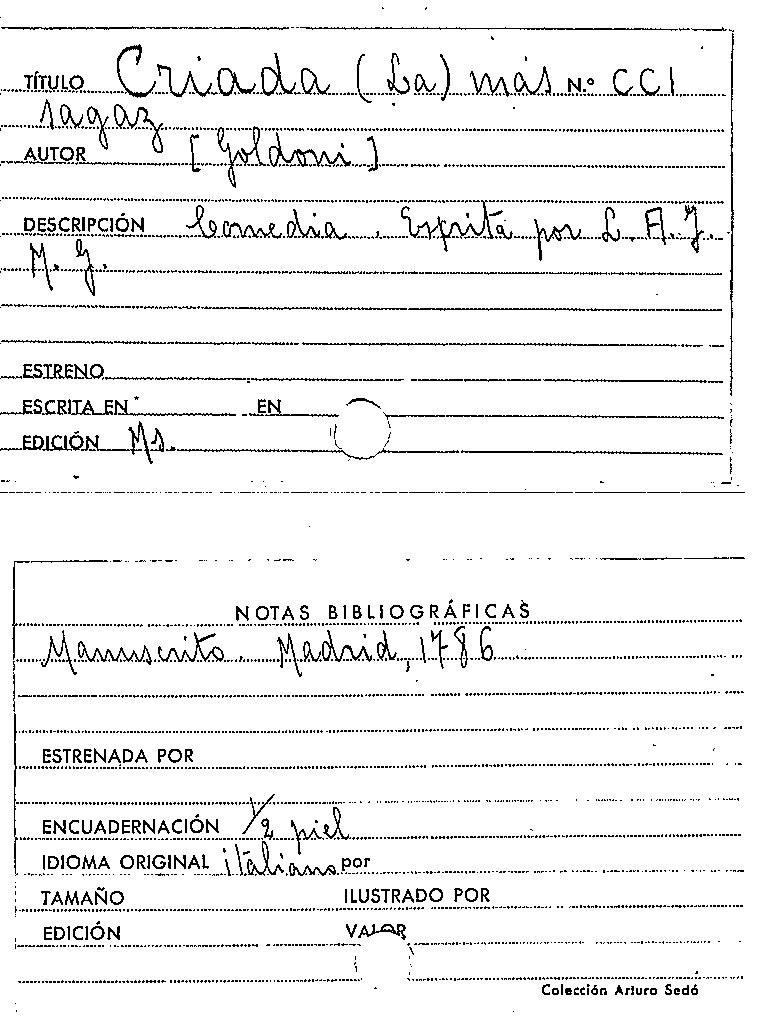 TÍTULO Criada (La) más N.º CCI
sagaz
AUTOR [Goldoni]
DESCRIPCIÓN Comedia. Esprita por L. A. J.
M. G.
ESTRENO
ESCRITA EN EN
EDICIÓN Ms.
NOTAS BIBLIOGRÁFICAS
Manuscrito. Madrid, 1786
ESTRENADA POR
ENCUADERNACIÓN 1/2 piel
IDIOMA ORIGINAL italiano por
TAMAÑO ILUSTRADO POR
EDICIÓN VALOR
Colección Arturo Sedó